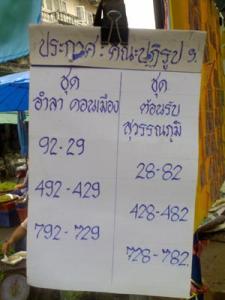 ประกาศ : คณะปฏิรูป ๑.
ชุด
อำลา ดอนเมือง
92-29
492-429
792-729
ชุด
ต้อนรับ
สุวรรณภูมิ
28-82
428-482
728-782